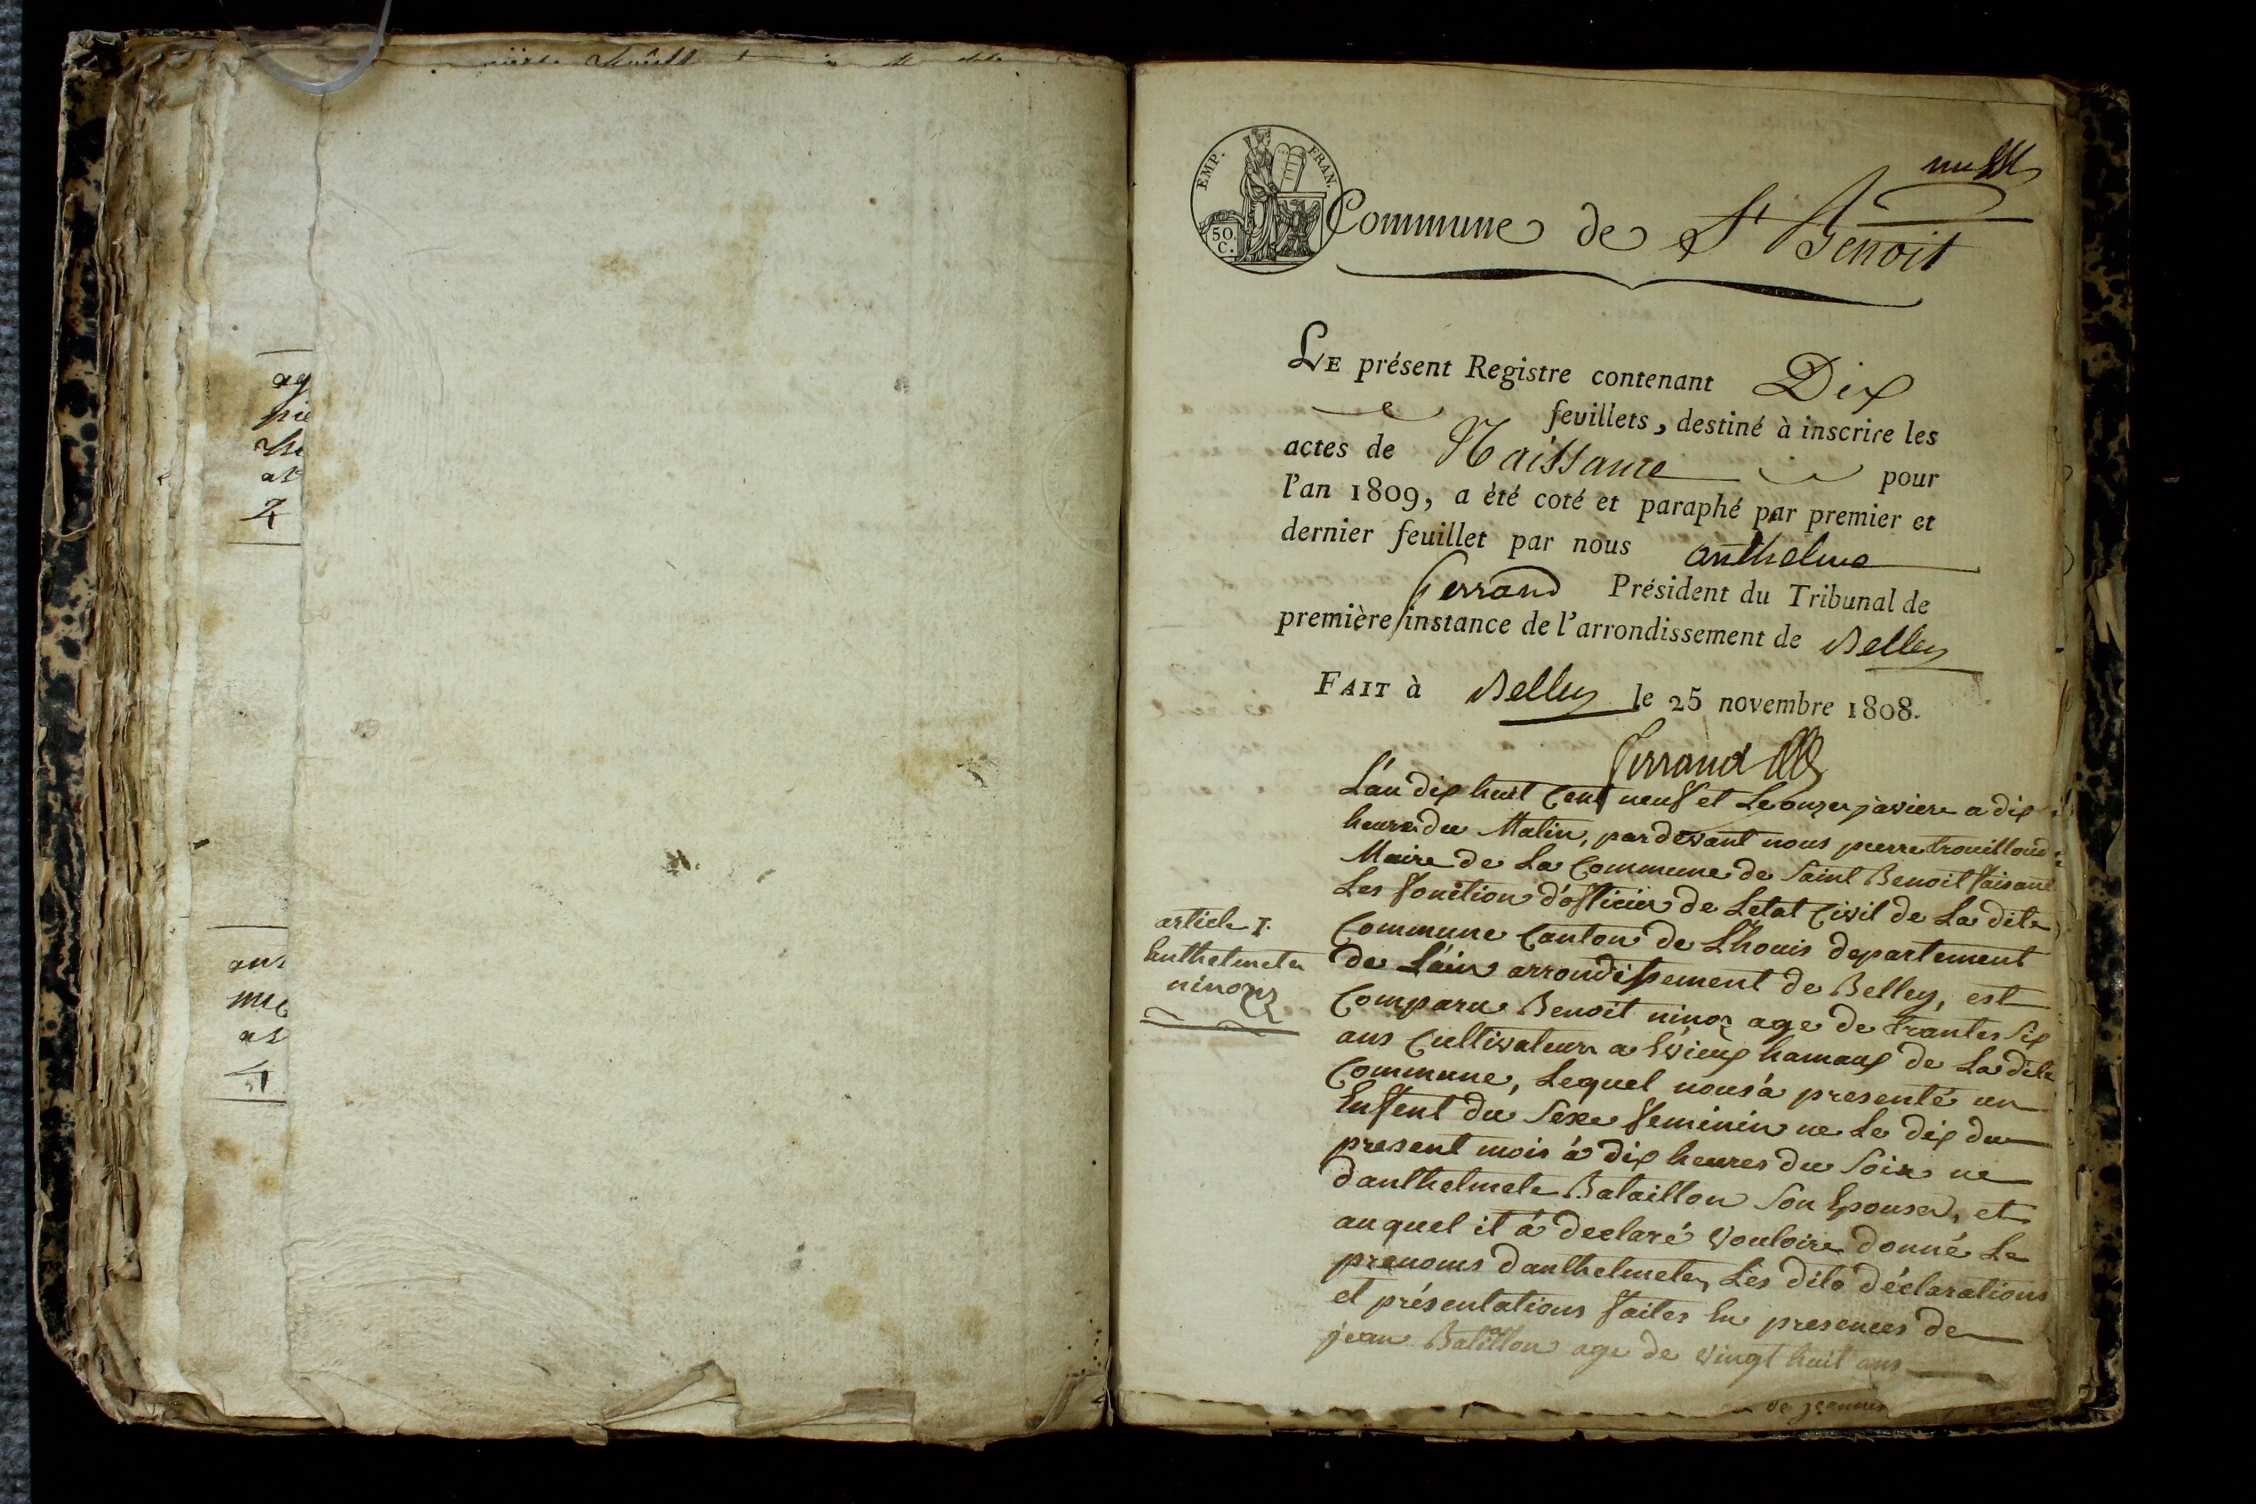 ag
pie
at
ant
me
at
EMP. FRAN.
50.
C.
Commune de St Benoit
LE présent Registre contenant Dix
feuillets, destiné à inscrire les
actes de Naissance pour
l'an 1809, a été coté et paraphé par premier et
dernier feuillet par nous anthelme
ferrand Président du Tribunal de
première instance de l'arrondissement de Belley
FAIT à Belley le 25 novembre 1808.
ferrand
L'an dix huit Cent neuf et Le onze javiere a dix
heures du Matin, pardevant nous pierre trouilloud
Maire de La Commune de Saint Benoit faisant
Les fonction d'officier de Letat Civil de La dite
Commune Canton de L'houis departement
de L'ain arrondissement de Belley, est
Comparu Benoit ninoz age de trantes six
ans Cultivateur a Evieux hamaux de La dite
Commune, Lequel nous à presenté un
Enffent du Sexe feminin ne Le dix du
present mois à dix heures du Soir ne
danthelmete Bataillon Son Epouse, et
auquel il à declaré Vouloire donné Le
prenoms danthelmete, Les dite déclarations
et présentations faites En presences de
jean Batillon age de vingt huit ans
article 1.
Enthelmete
ninoz
de jeannin